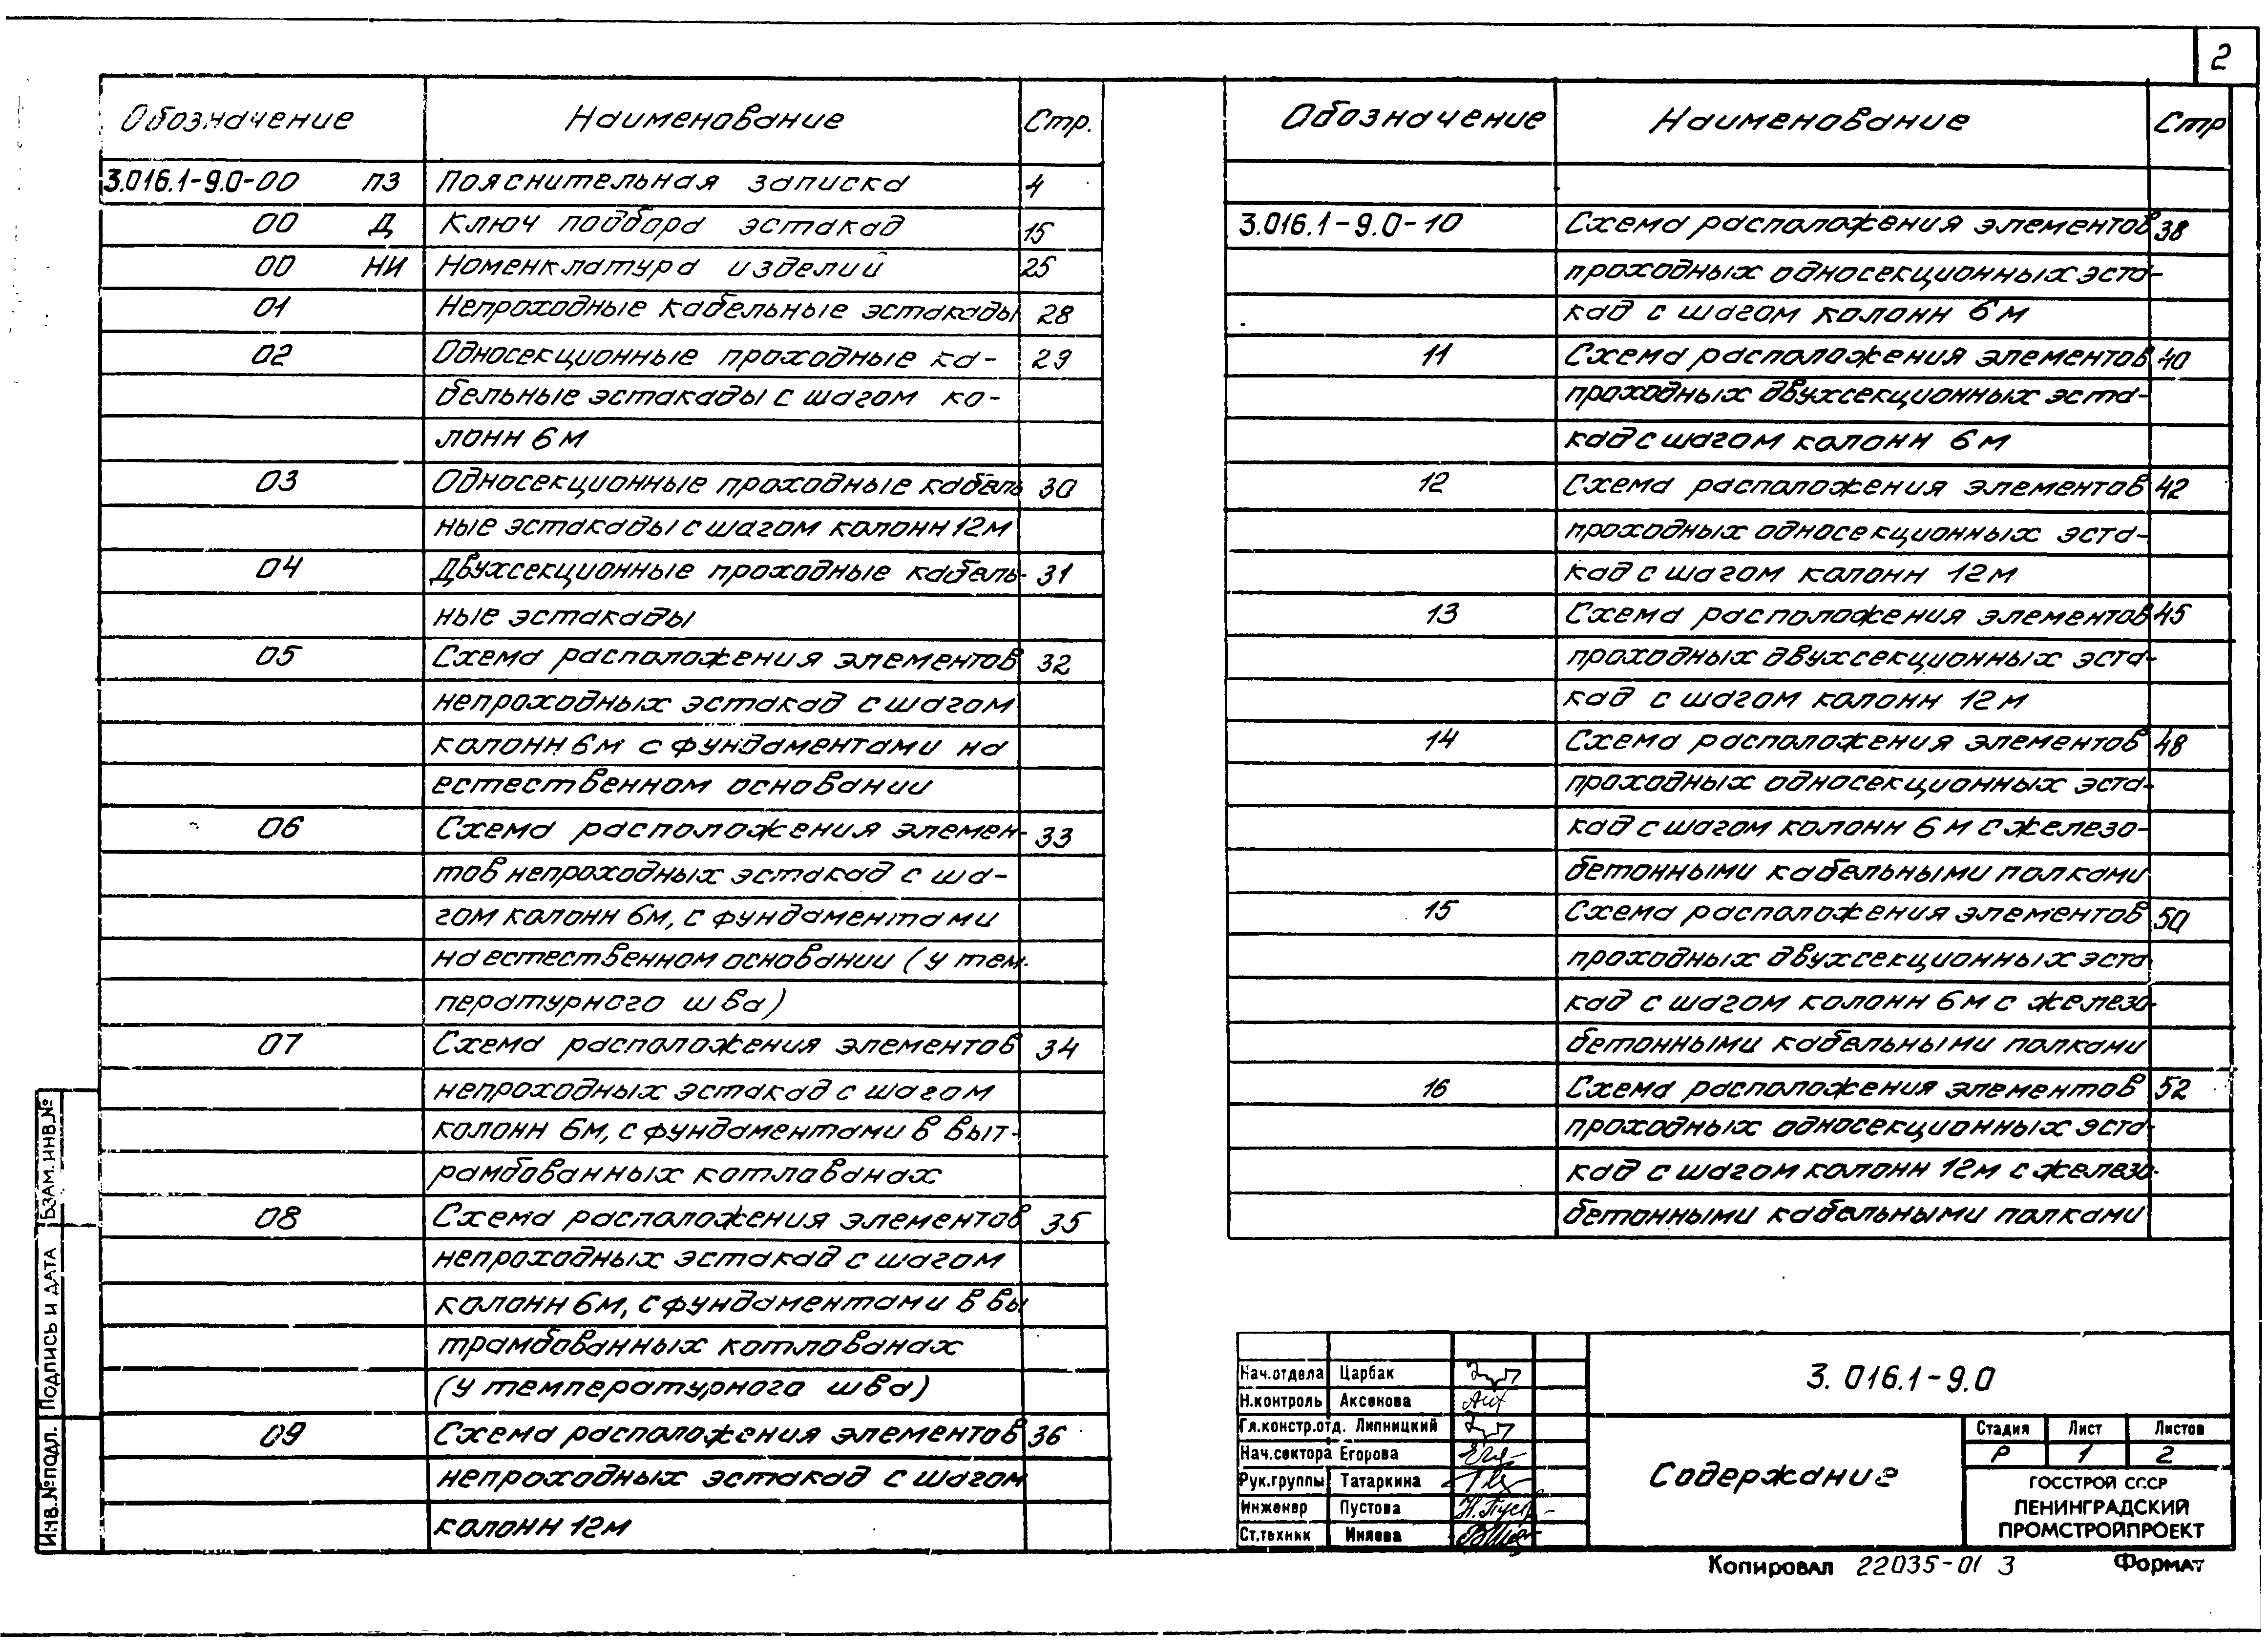 2
Обозначение Наименование Стр.
3.016.1-9.0-00 ПЗ Пояснительная записка 4
00 Д Ключ подбора эстакад 15
00 НИ Номенклатура изделий 25
01 Непроходные кабельные эстакады 28
02 Односекционные проходные ка- 29
бельные эстакады с шагом ко-
лонн 6м
03 Односекционные проходные кабель 30
ные эстакады с шагом колонн 12м
04 Двухсекционные проходные кабель- 31
ные эстакады
05 Схема расположения элементов 32
непроходных эстакад с шагом
колонн 6м с фундаментами на
естественном основании
06 Схема расположения элемен- 33
тов непроходных эстакад с ша-
гом колонн 6м, с фундаментами
на естественном основании (у тем-
пературного шва)
07 Схема расположения элементов 34
непроходных эстакад с шагом
колонн 6м, с фундаментами в выт-
рамбованных котлованах
08 Схема расположения элементов 35
непроходных эстакад с шагом
колонн 6м, с фундаментами в вы
трамбованных котлованах
(у температурного шва)
09 Схема расположения элементов 36
непроходных эстакад с шагом
колонн 12м
Обозначение Наименование Стр
3.016.1-9.0-10 Схема расположения элементов 38
проходных односекционных эста-
кад с шагом колонн 6м
11 Схема расположения элементов 40
проходных двухсекционных эста-
кад с шагом колонн 6м
12 Схема расположения элементов 42
проходных односекционных эста-
кад с шагом колонн 12м
13 Схема расположения элементов 45
проходных двухсекционных эста-
кад с шагом колонн 12м
14 Схема расположения элементов 48
проходных односекционных эста-
кад с шагом колонн 6м с железо-
бетонными кабельными полками
15 Схема расположения элементов 50
проходных двухсекционных эста
кад с шагом колонн 6м с железо-
бетонными кабельными полками
16 Схема расположения элементов 52
проходных односекционных эста-
кад с шагом колонн 12м с железо-
бетонными кабельными полками
Взам.инв.№
Подпись и дата
Инв.№подл.
Нач.отдела Царбак
Н.контроль Аксенова
Гл.констр.отд. Липницкий
Нач.сектора Егорова
Рук.группы Татаркина
Инженер Пустова
Ст.техник
3.016.1-9.0
Содержание
Стадия Лист Листов
Р 1 2
ГОССТРОЙ СССР
ЛЕНИНГРАДСКИЙ
ПРОМСТРОЙПРОЕКТ
Копировал 22035-01 3 Формат